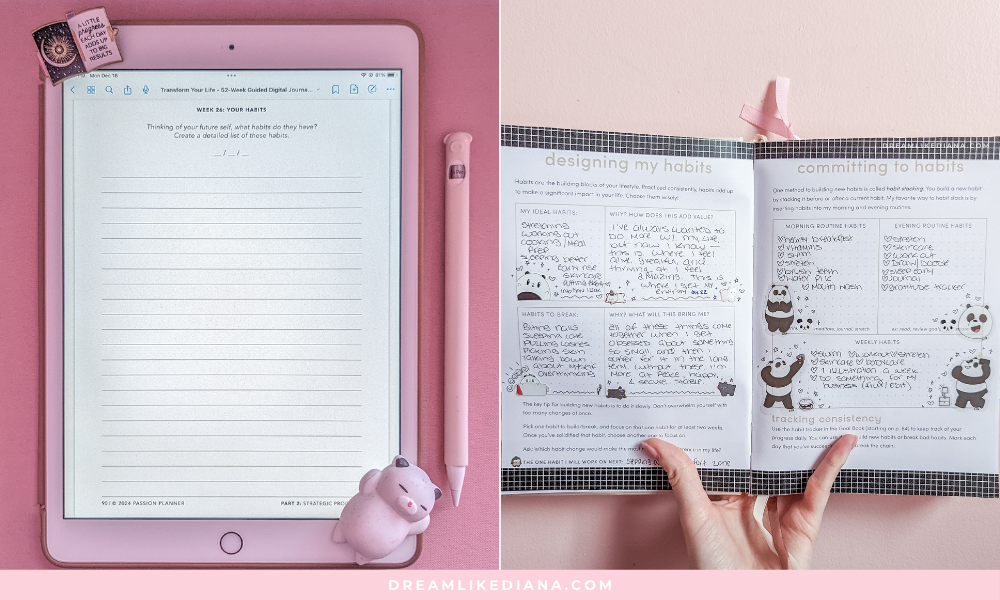 A LITTLE
progress
EACH DAY
ADDS UP
TO BIG
RESULTS
Mon Dec 18
81%
Transform Your Life - 52-Week Guided Digital Journa...
WEEK 26: YOUR HABITS
Thinking of your future self, what habits do they have?
Create a detailed list of those habits.
_ / _ / _
90 | © 2024 PASSION PLANNER
PART 2: STRATEGIC
DREAMLIKEDIANA.COM
designing my habits
Habits are the building blocks of your lifestyle. Practiced consistently, habits add up
to make a significant impact in your life. Choose them wisely!
MY IDEAL HABITS:
stretching
working out
cooking/meal
prep
sleeping better
early rise
skincare
WHY? HOW DOES THIS ADD VALUE?
I've always wanted to
do more w/ my life,
but now I know —
this is where I feel
alive, beautiful, and
thriving. at I feel
amazing. This is
where I get my
energy
HABITS TO BREAK:
Biting nails
sleeping late
pulling lashes
picking skin
talking down
about myself
overthinking
WHY? WHAT WILL THIS BRING ME?
all of these things come
together when I get
obsessed about something
so small, and then I
suffer for it in the long
term. without these I'm
more at peace, happy,
& secure, stable.
The key tip for building new habits is to do it slowly. Don't overwhelm yourself with
too many changes at once.
Pick one habit to build/break, and focus on that one habit for at least two weeks.
Once you've solidified that habit, choose another one to focus on.
Ask: Which habit change would make the most difference in my life?
THE ONE HABIT I WILL WORK ON NEXT: zone
committing to habits
One method to building new habits is called habit stacking. You build a new habit
by stacking it before or after a current habit. My favorite way to habit stack is by
inserting habits into my morning and evening routines.
MORNING ROUTINE HABITS
healthy breakfast
vitamins
swim
stretch
brush teeth
water pic
mouth wash
EVENING ROUTINE HABITS
stretch
skincare
work out
draw/
sleep early
journal
gratitude tracker
meditate, journal, stretch
ex: read, review
WEEKLY HABITS
swim workout/stretch
skincare bodycare
1 illustration a week
do something for my
business (film/edit)
tracking consistency
Use the habit tracker in the Goal Book (starting on p. 64) to keep track of your
progress daily. You can use it to build new habits or break bad habits. Mark each
day that you've successfully the chain!
DREAMLIKEDIANA.COM